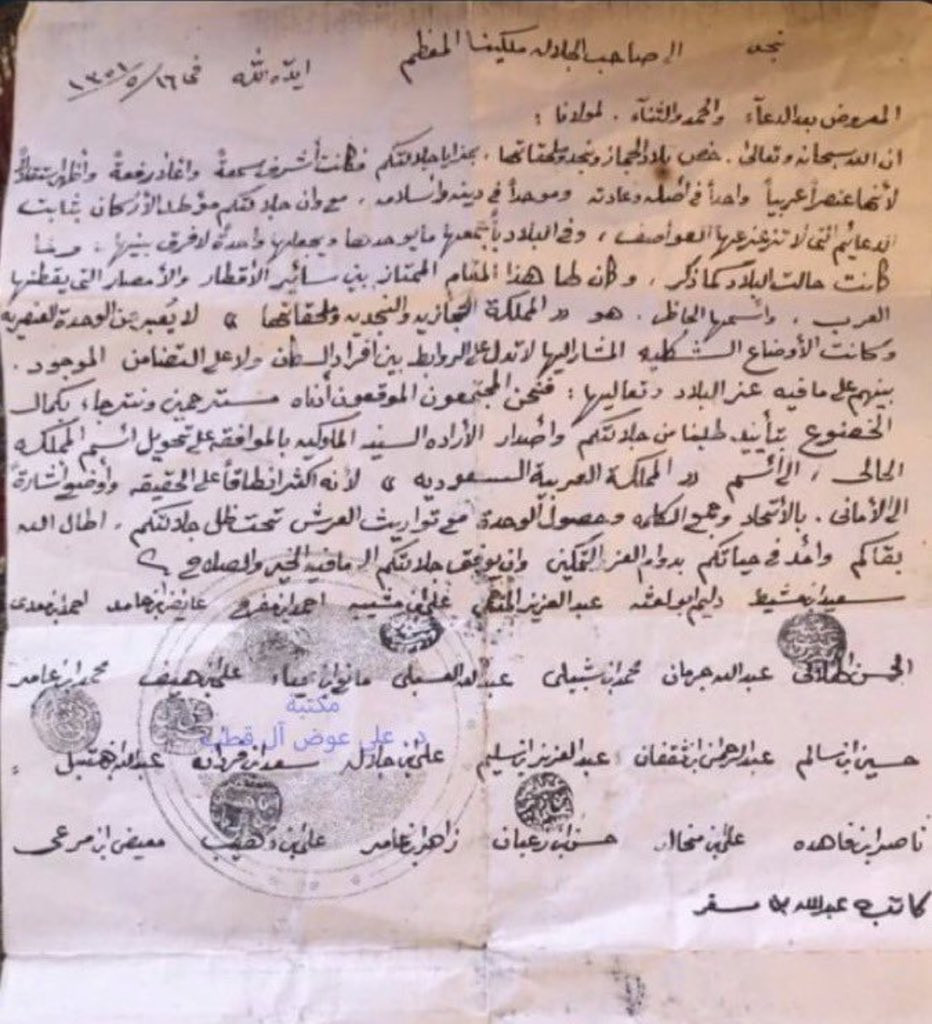 نجد الى صاحب الجلاله مليكنا المعظم
ايده الله فى ١٦/٥/١٣٥١
المعروض بعد الدعآء والحمد والثنآء . لمولانا :
ان الله سبحانه وتعالى . خص بلاد الحجاز ونجد وملحقاتها . بمزايا جلالتكم فكانت أشرف سمعةً وانفاذ رفعةً وأظهر استقلالاً
لأنها عنصراً عربياً واحداً فى أصله وعادته وموحداً فى دينه واسلامه . مع وان جلالتكم مؤطد الأركان بثابت
الدعائم التى لا تزعزعها العواصف ، وفى البلاد بأجمعها ما يوحدها ويجعلها واحدة لا فرق بينها .
كانت حالت البلاد كما ذكر ، وكان لها هذا المقام الممتاز بين سائر الأقطار والأمصار التى يقطنها
العرب ، وأسمها الحاظر . هو « المملكة الحجازيه والنجديه وملحقاتها » لا يُعبر عن الوحدة العنصريه
وكانت الأوضاع الشكليه المشار اليها لا تدل على الروابط بين افراد السكان ولا على التضامن الموجود .
بينهم على ما فيه عز البلاد وتعاليها : فنحن المجتمعون الموقعون أدناه مسترحمين ونترجاء بكمال
الخضوع تأييد طلبنا من جلالتكم وأصدار الأراده السنيه الملوكيه بالموافقه على تحويل اسم المملكه
الحالى ، الى أسم « المملكة العربية السعوديه » لأنه أكثر انطاقاً على الحقيقه وأوضح أشارةً
الى الأمانى . بالأتحاد وجمع الكلمه وحصول الوحدة مع تواريث العرش تحت ظل جلالتكم . اطال الله
بقاكم وأمد فى حياتكم بدوام العز والتمكين وان يوفق جلالتكم الى ما فيه الخير والصلاح
سعيد ابن مشيط دليم ابو لعثه عبدالعزيز المتحمى على ابن مشيبه احمد ابن مفرح عايض ابن حامد احمد ابن معدى
الحسن الهلالى عبدالله جرمان محمد ابن شبيلى عبدالله العسبلى مانع ابن جيفاء على ابن هيف محمد ابن عامر
مكتبة
د. علي عوض آل قطب
حسين ابن سالم عبدالرحمن ابن ثقفان عبدالعزيز ابن سليم على ابن جلال سعد ابن فردان عبدالله ابن همسل
ناصر ابن قاهده على بن منحال حسن ابن رعبان زاهر ابن عامر على بن وهيب معيض ابن مرعى
كاتبه عبدالله بن مسفر